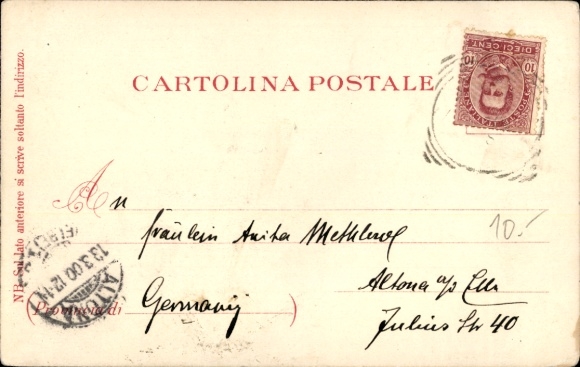 CARTOLINA POSTALE
NB. Sul lato anteriore si scrive soltanto l'indirizzo.
POSTE ITALIANE
10 10
DIECI CENT
An
Fräulein Anita
Altona a/s Elbe
Germany
(Provincia di )
Julius Str 40
10.-
ALTONA
13.3.00.12-1N